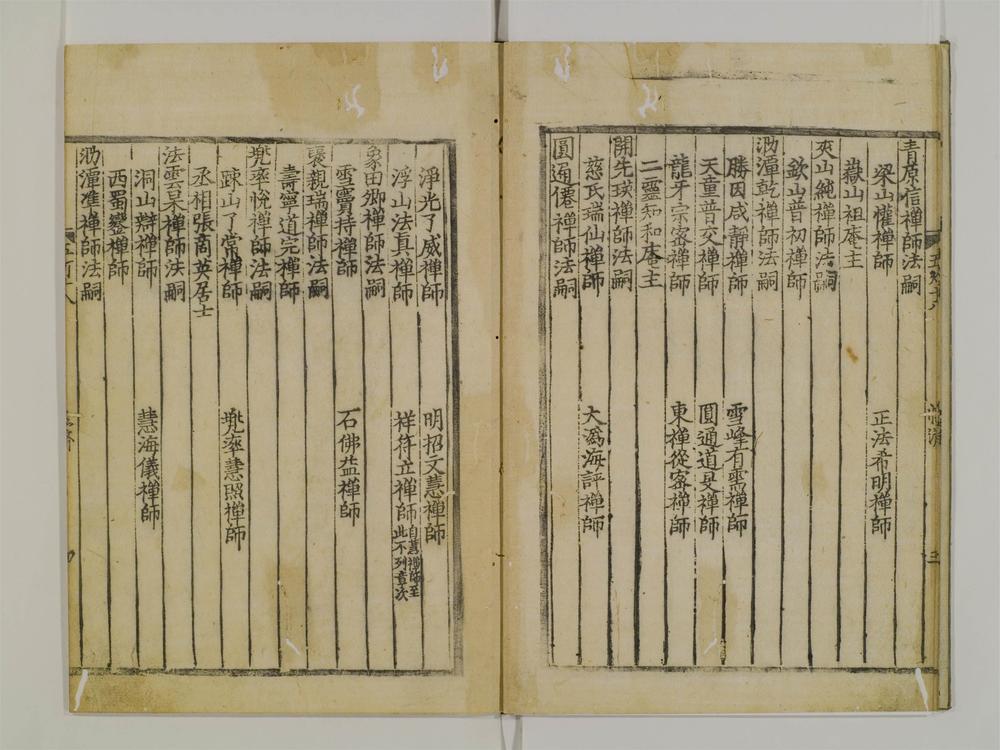 青原信禪師法嗣
梁山懽禪師　正法希明禪師
嶽山祖庵主
夾山純禪師法嗣
欽山普初禪師
泐潭乾禪師法嗣
勝因咸靜禪師　雪峰有需禪師
天童普交禪師　圓通道旻禪師
龍牙宗密禪師　東禪從密禪師
二靈知和庵主
開先瑛禪師法嗣
慈氏瑞仙禪師　大溈海評禪師
圓通僊禪師法嗣
淨光了威禪師　明招文慧禪師
浮山法真禪師　祥符立禪師 自慧禪師至此不列章次
象田卿禪師法嗣
雪竇持禪師　石佛益禪師
褒親瑞禪師法嗣
壽寧道完禪師
兜率悅禪師法嗣
疎山了常禪師　兜率慧照禪師
丞相張商英居士
法雲杲禪師法嗣
洞山辯禪師　慧海儀禪師
西蜀鑾禪師
泐潭准禪師法嗣